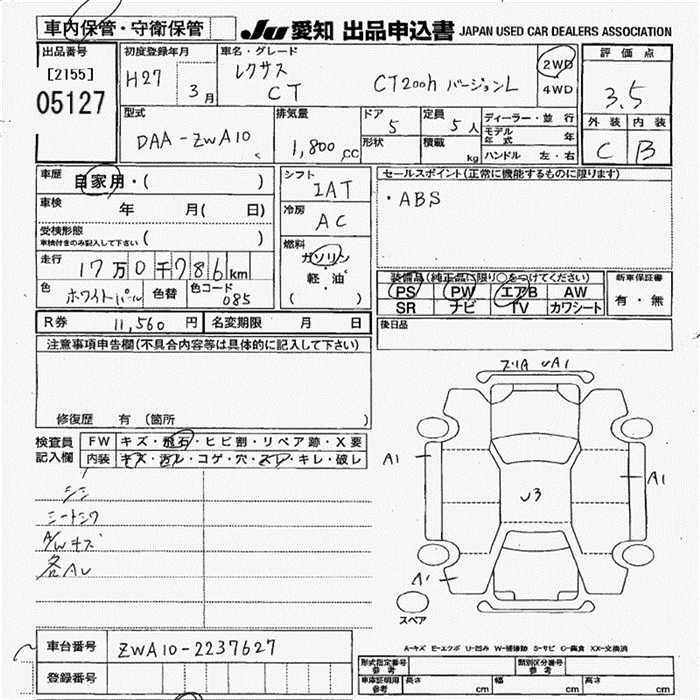 車内保管・守衛保管 Ju 愛知 出品申込書 JAPAN USED CAR DEALERS ASSOCIATION
出品番号 初度登録年月 車名・グレード 評価点
[2155] H27 3月 レクサス CT CT200h バージョンL 2WD 4WD 3.5
05127
型式 排気量 ドア 5 定員 5人 ディーラー・並行 外装 内装
DAA-ZWA10 1,800cc 形状 積載 kg モデル年式 年 C B
ハンドル 左・右
車歴 自家用・( ) シフト IAT セールスポイント(正常に機能するものに限ります)
車検 年 月( 日) 冷房 AC ・ABS
受検形態 車検付きのみ記入して下さい ( )
燃料 ガソリン・軽油 ( )
走行 17万0千786km 装備品(純正品に限り○をつけてください) 新車保証書
PS PW エアB AW 有・無
色 ホワイトパール 色替 色コード 085 SR ナビ TV カワシート
R券 11,560円 名変期限 月 日 後日品
注意事項申告欄(不具合内容等は具体的に記入して下さい)
修復歴 有 (箇所 )
検査員記入欄 FW キズ・飛石・ヒビ割・リペア跡・X要
内装 キズ・汚レ・コゲ・穴・スレ・キレ・破レ
シミ
A/Wキズ
A1
A1
U3
A1
スペア
車台番号 ZWA10-2237627
登録番号
A-キズ E-エクボ U-凹み W-補修跡 S-サビ C-腐食 XX-交換済
形式指定番号 参考 類別区分番号 参考
車庫証明用 参考 長さ cm 幅 cm 高さ cm